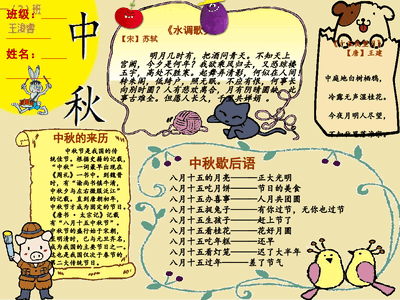 班级：
王浚睿
姓名：
中秋
《水调歌
【宋】苏轼
明月几时有，把酒问青天。不知天上
宫阙，今夕是何年？我欲乘风归去，又恐琼楼
玉宇，高处不胜寒。起舞弄清影，何似在人间！
转朱阁，低绮户，照无眠。不应有恨，何事长
向别时圆？人有悲欢离合，月有阴晴圆缺，此
事古难全。但愿人长久，千里共婵娟。
【唐】王建
中庭地白树栖鸦，
冷露无声湿桂花。
今夜月明人尽望，
中秋的来历
中秋节是我国的传
统佳节。根据史籍的记载，
“中秋”一词最早出现在
《周礼》一书中。到魏晋
时，有“谕尚书镇牛渚，
中秋夕与左右微服泛江”
的记载。直到唐朝初年，
中秋节才成为固定的节日。
《唐书·太宗记》记载
有“八月十五中秋节”。
中秋节的盛行始于宋朝，
至明清时，已与元旦齐名，
成为我国的主要节日之一。
这也是我国仅次于春节的
第二大传统节日。
中秋歇后语
八月十五的月亮——正大光明
八月十五吃月饼——节日的美食
八月十五办喜事——人月共团圆
八月十五捉兔子——有你过节，无你也过节
八月十五生孩子——赶上节了
八月十五看桂花——花好月圆
八月十五吃年糕——还早
八月十五看灯笼——迟了大半年
八月十五过年——差了节气